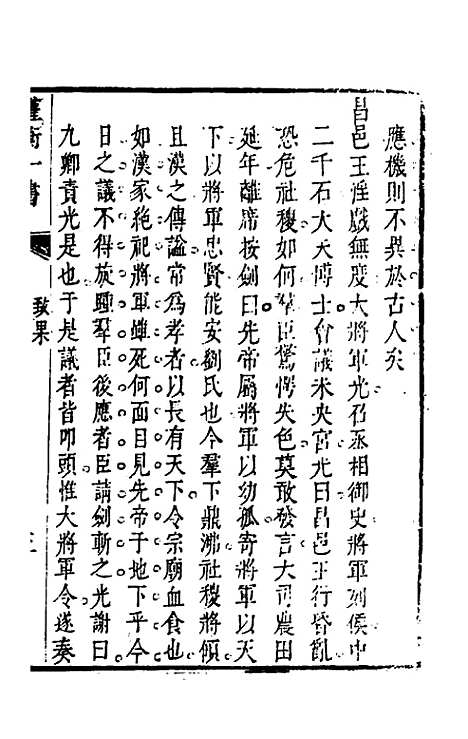 應機則不異於古人矣
昌邑王淫戲無度大將軍光召丞相御史將軍列侯中
二千石大夫博士會議未央宮光曰昌邑王行昏亂
恐危社稷如何羣臣驚愕失色莫敢發言大司農田
延年離席按劍曰先帝屬將軍以幼孤寄將軍以天
下以將軍忠賢能安劉氏也今羣下鼎沸社稷將傾
且漢之傳謚常為孝者以長有天下令宗廟血食也
如漢家絶祀將軍雖死何面目見先帝于地下乎今
日之議不得旋踵羣臣後應者臣請劍斬之光謝曰
九卿責光是也于是議者皆叩頭惟大將軍令遂奏
衡一書
致果